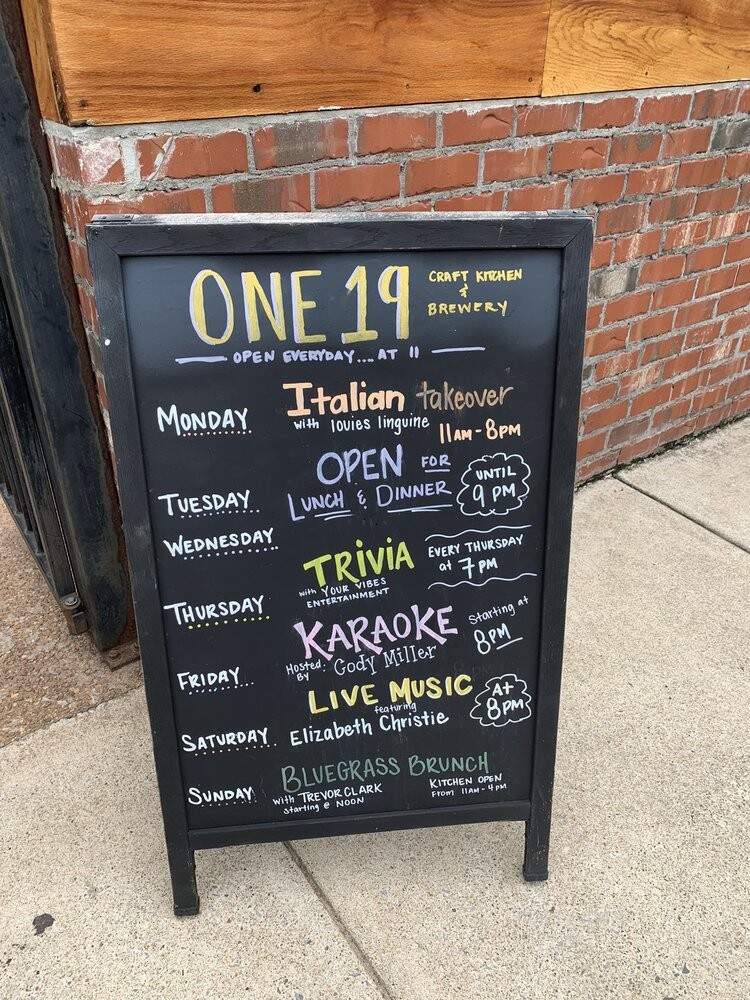 ONE 19 CRAFT KITCHEN
&
BREWERY
OPEN EVERYDAY.... AT 11
MONDAY Italian takeover
with louies linguine 11AM-8PM
TUESDAY OPEN FOR
LUNCH & DINNER
UNTIL
9 PM
WEDNESDAY
THURSDAY TRIVIA
with YOUR VIBES
ENTERTAINMENT
EVERY THURSDAY
at 7PM
FRIDAY KARAOKE
Hosted: Cody Miller
By
Starting at
8PM
SATURDAY LIVE MUSIC
featuring
Elizabeth Christie
AT
8PM
SUNDAY BLUEGRASS BRUNCH
with TREVOR CLARK
starting @ NOON
KITCHEN OPEN
From 11AM-4PM